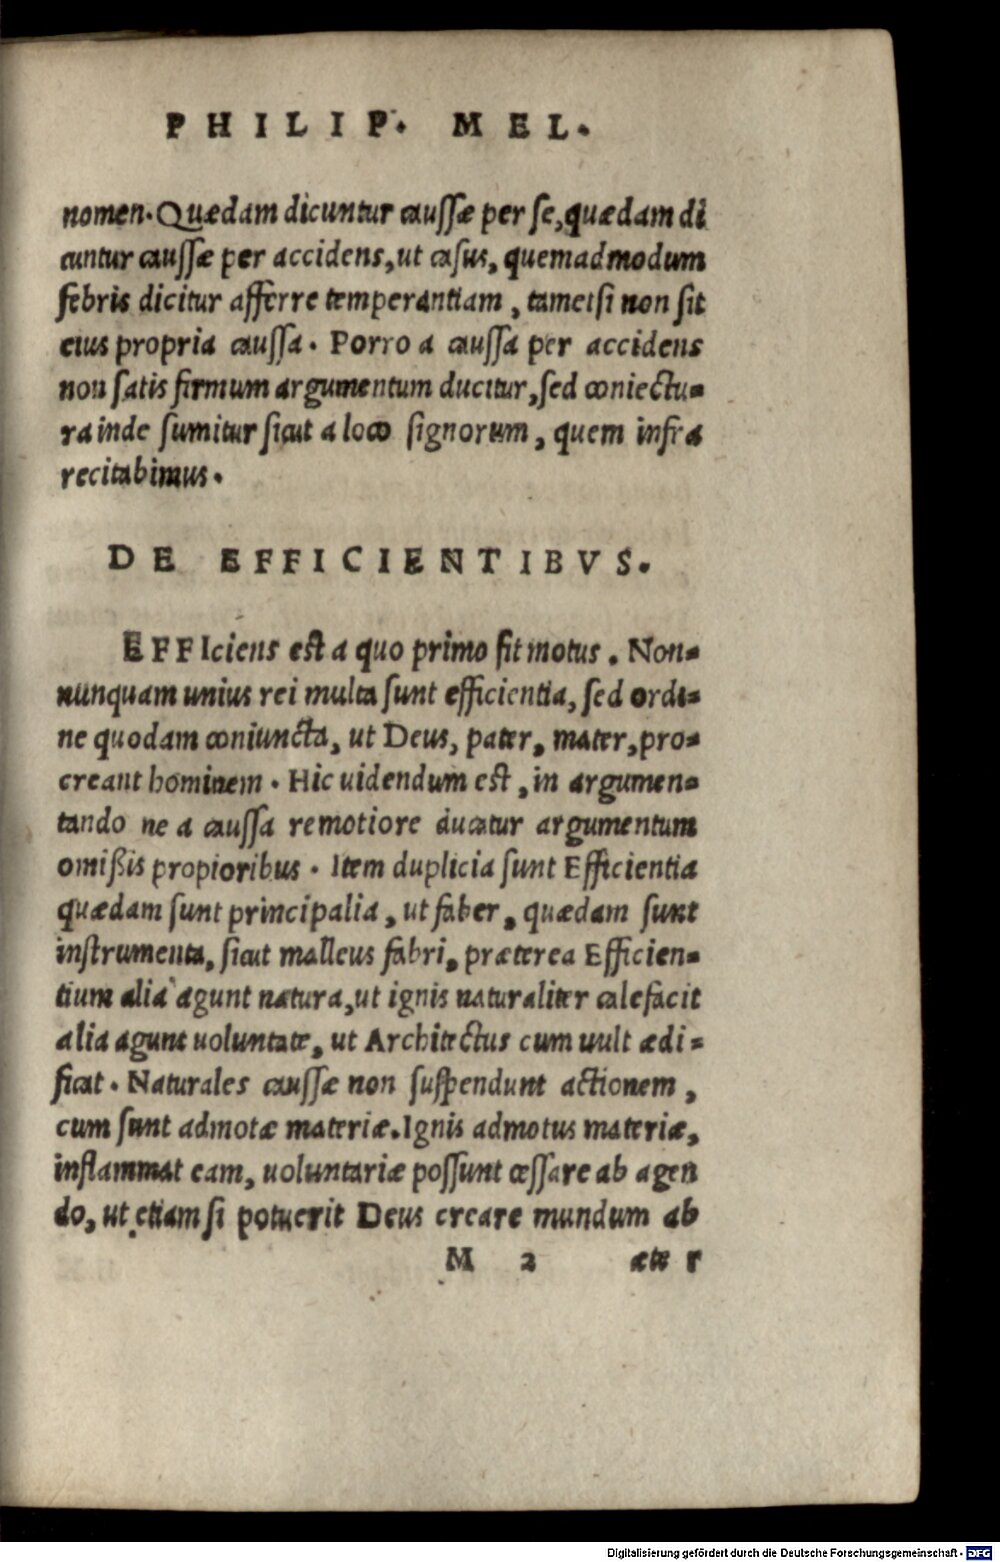 PHILIP. MEL.
nomen. Quædam dicuntur caussæ per se, quædam di
cuntur caussæ per accidens, ut casus, quemadmodum
febris dicitur afferre temperantiam, tametsi non sit
eius propria caussa. Porro a caussa per accidens
non satis firmum argumentum ducitur, sed coniectu-
ra inde sumitur sicut a loco signorum, quem infra
recitabimus.
DE EFFICIENTIBVS.
EFFIciens est a quo primo fit motus. Non-
nunquam unius rei multa sunt efficientia, sed ordi-
ne quodam coniuncta, ut Deus, pater, mater, pro-
creant hominem. Hic uidendum est, in argumen-
tando ne a caussa remotiore ducatur argumentum
omißis propioribus. Item duplicia sunt Efficientia
quædam sunt principalia, ut faber, quædam sunt
instrumenta, sicut malleus fabri, præterea Efficien-
tium alia agunt natura, ut ignis naturaliter calefacit
alia agunt uoluntate, ut Architectus cum uult ædi-
ficat. Naturales caussæ non suspendunt actionem,
cum sunt admotæ materiæ. Ignis admotus materiæ,
inflammat eam, uoluntariæ possunt cessare ab agen
do, ut etiam si potuerit Deus creare mundum ab
M 2 æter
Digitalisierung gefördert durch die Deutsche Forschungsgemeinschaft - DFG